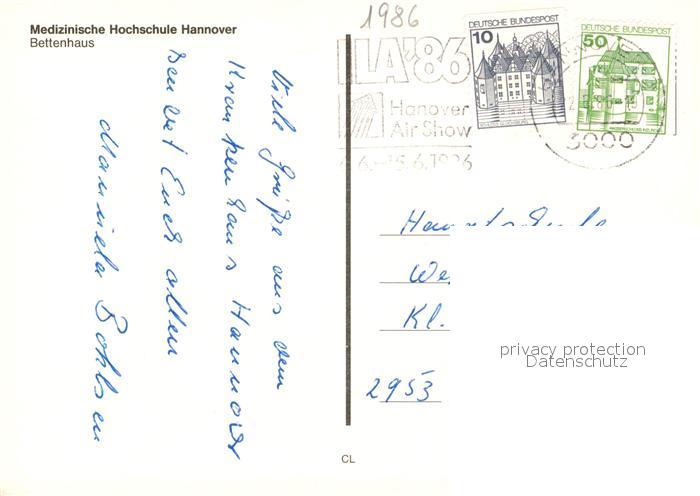 Medizinische Hochschule Hannover
Bettenhaus
1986
ILA'86
Hanover
Air Show
6.–15.6.1986
DEUTSCHE BUNDESPOST
10
DEUTSCHE BUNDESPOST
50
3000
Viele Grüße aus dem
Krankenhaus Hannover
sendet Euch allen
Manuela
Kl.
2953
CL
privacy protection
Datenschutz